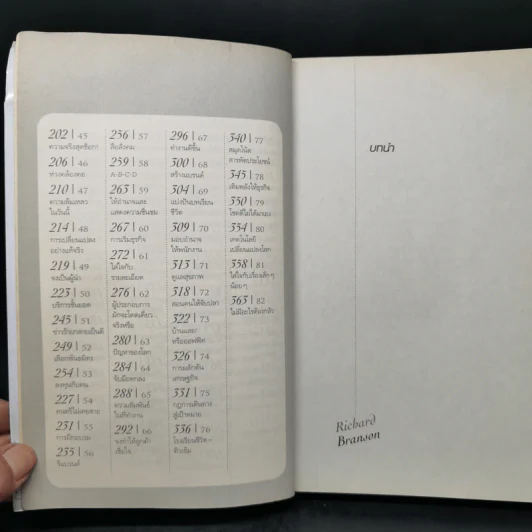 202 | 45
ความจริงสุดช็อก!
206 | 46
ห่วงคล้องคอ
210 | 47
ความล้มเหลว
ในวันนี้
214 | 48
การเปลี่ยนแปลง
อย่างแท้จริง
219 | 49
จงเป็นผู้นำ
223 | 50
บริการชั้นยอด
245 | 51
249 | 52
254 | 53
ลงทุนกับคน
227 | 54
ดนตรีไม่เคยตาย
231 | 55
การฝึกอบรม
235 | 56
รีแบรนด์
256 | 57
สื่อสังคม
259 | 58
A-B-C-D
263 | 59
ให้อำนาจและ
แสดงความชื่นชม
267 | 60
การเริ่มธุรกิจ
272 | 61
ใส่ใจกับ
รายละเอียด
276 | 62
ผู้ประกอบการ
มักจะโดดเดี่ยว
จริงหรือ
280 | 63
ปัญหาของโลก
284 | 64
จับมือตกลง
288 | 65
ความสัมพันธ์
ในที่ทำงาน
292 | 66
จงทำให้ลูกค้า
เซอร์ไพรส์
296 | 67
ทำงานดีขึ้น
300 | 68
สร้างแบรนด์
304 | 69
แบ่งปันบทเรียน
ชีวิต
309 | 70
มอบอำนาจ
ให้พนักงาน
313 | 71
ดูแลสุขภาพ
318 | 72
สอนคนให้จับปลา
322 | 73
บ้านและ/
หรือออฟฟิศ
326 | 74
การผลักดัน
เศรษฐกิจ
331 | 75
กฎการเดินทาง
สู่เป้าหมาย
336 | 76
โรงเรียนชีวิต
340 | 77
สมุดโน้ต
สารพัดประโยชน์
345 | 78
เติมพลังให้ธุรกิจ
350 | 79
โชคดีไม่ได้มาเอง
354 | 80
เทคโนโลยี
เปลี่ยนแปลงโลก
358 | 81
ใส่ใจกับเรื่องเล็กๆ
น้อยๆ
363 | 82
บทนำ
Richard
Branson